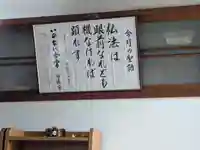 今月の聖語
仏法は
眼前なれども
機なければ
顕れず